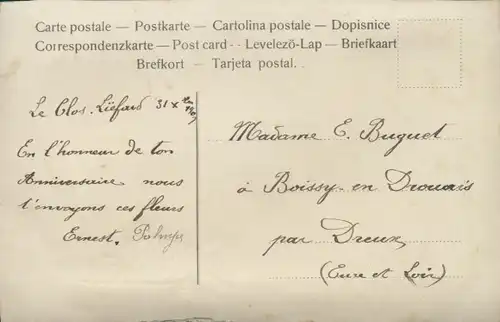 Carte postale — Postkarte — Cartolina postale — Dopisnice
Correspondenzkarte — Post card - - Levelező-Lap — Briefkaart
Brefkort — Tarjeta postal.
Le Clos. 31 X
En l'honneur de ton
Anniversaire nous
t'envoyons ces fleurs
Ernest.
Madame E. Buguet
à Boissy-en Drouais
par Dreux
(Eure et Loir)